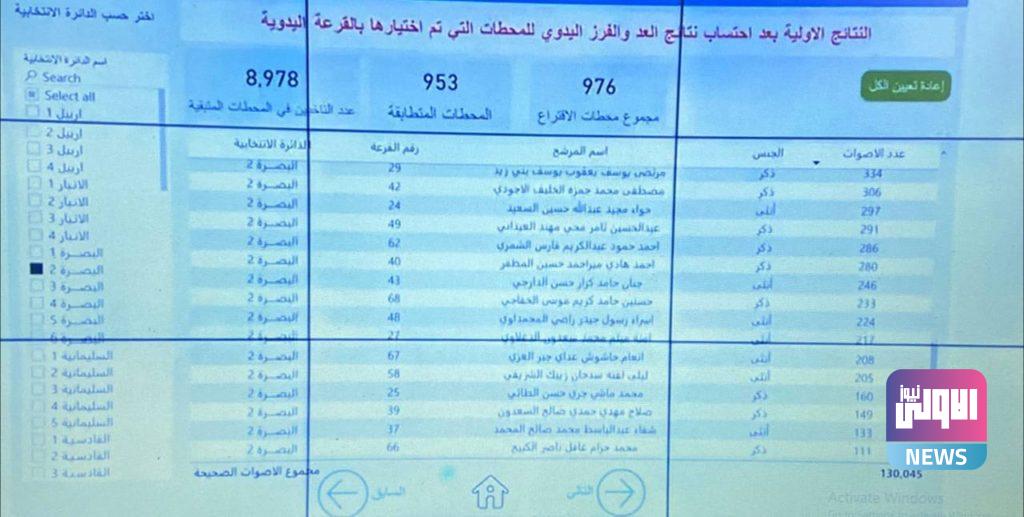 اختر حسب الدائرة الانتخابية
النتائج الاولية بعد احتساب نتائج العد والفرز اليدوي للمحطات التي تم اختيارها بالقرعة اليدوية
إعادة تعيين الكل
976
مجموع محطات الاقتراع
953
المحطات المتطابقة
8,978
عدد الناخبين في المحطات المتبقية
اسم الدائرة الانتخابية
Search
Select all
اربيل 1
اربيل 2
اربيل 3
اربيل 4
الانبار 1
الانبار 2
الانبار 3
الانبار 4
البصرة 1
البصرة 2
البصرة 3
البصرة 4
البصرة 5
البصرة 6
السليمانية 1
السليمانية 2
السليمانية 3
السليمانية 4
السليمانية 5
القادسية 1
القادسية 2
القادسية 3
عدد الاصوات الجنس اسم المرشح رقم القرعة الدائرة الانتخابية
334 ذكر مرتضى يوسف يعقوب يوسف بني زيد 29 البصرة 2
306 ذكر مصطفى محمد حمزه الخليف الاجودي 42 البصرة 2
297 أنثى حواء مجيد عبدالله حسين السعيد 24 البصرة 2
291 ذكر عبدالحسين ثامر محي مهند العيداني 49 البصرة 2
286 ذكر احمد حمود عبدالكريم فارس الشمري 62 البصرة 2
280 ذكر احمد هادي ميراحمد حسين المظفر 40 البصرة 2
246 أنثى جنان حامد كزار حسن الدارجي 43 البصرة 2
233 ذكر حسنين حامد كريم موسى الخفاجي 68 البصرة 2
224 أنثى اسراء رسول حيدر راضي المحمداوي 48 البصرة 2
217 أنثى محمد 27 البصرة 2
208 أنثى انعام حاشوش عداي جبر العزي 67 البصرة 2
205 أنثى ليلى لفته سدخان زيبك الشريفي 58 البصرة 2
160 ذكر محمد ماضي جري حسن الطائي 25 البصرة 2
149 ذكر صلاح مهدي حمدي صالح السعدون 39 البصرة 2
133 أنثى شفاء عبدالباسط محمد صالح المحمد 37 البصرة 2
111 ذكر محمد حزام غافل ناصر 66 البصرة 2
130,045 مجموع الاصوات الصحيحة
التالي
السابق
Activate Windows
الاولى نيوز
NEWS